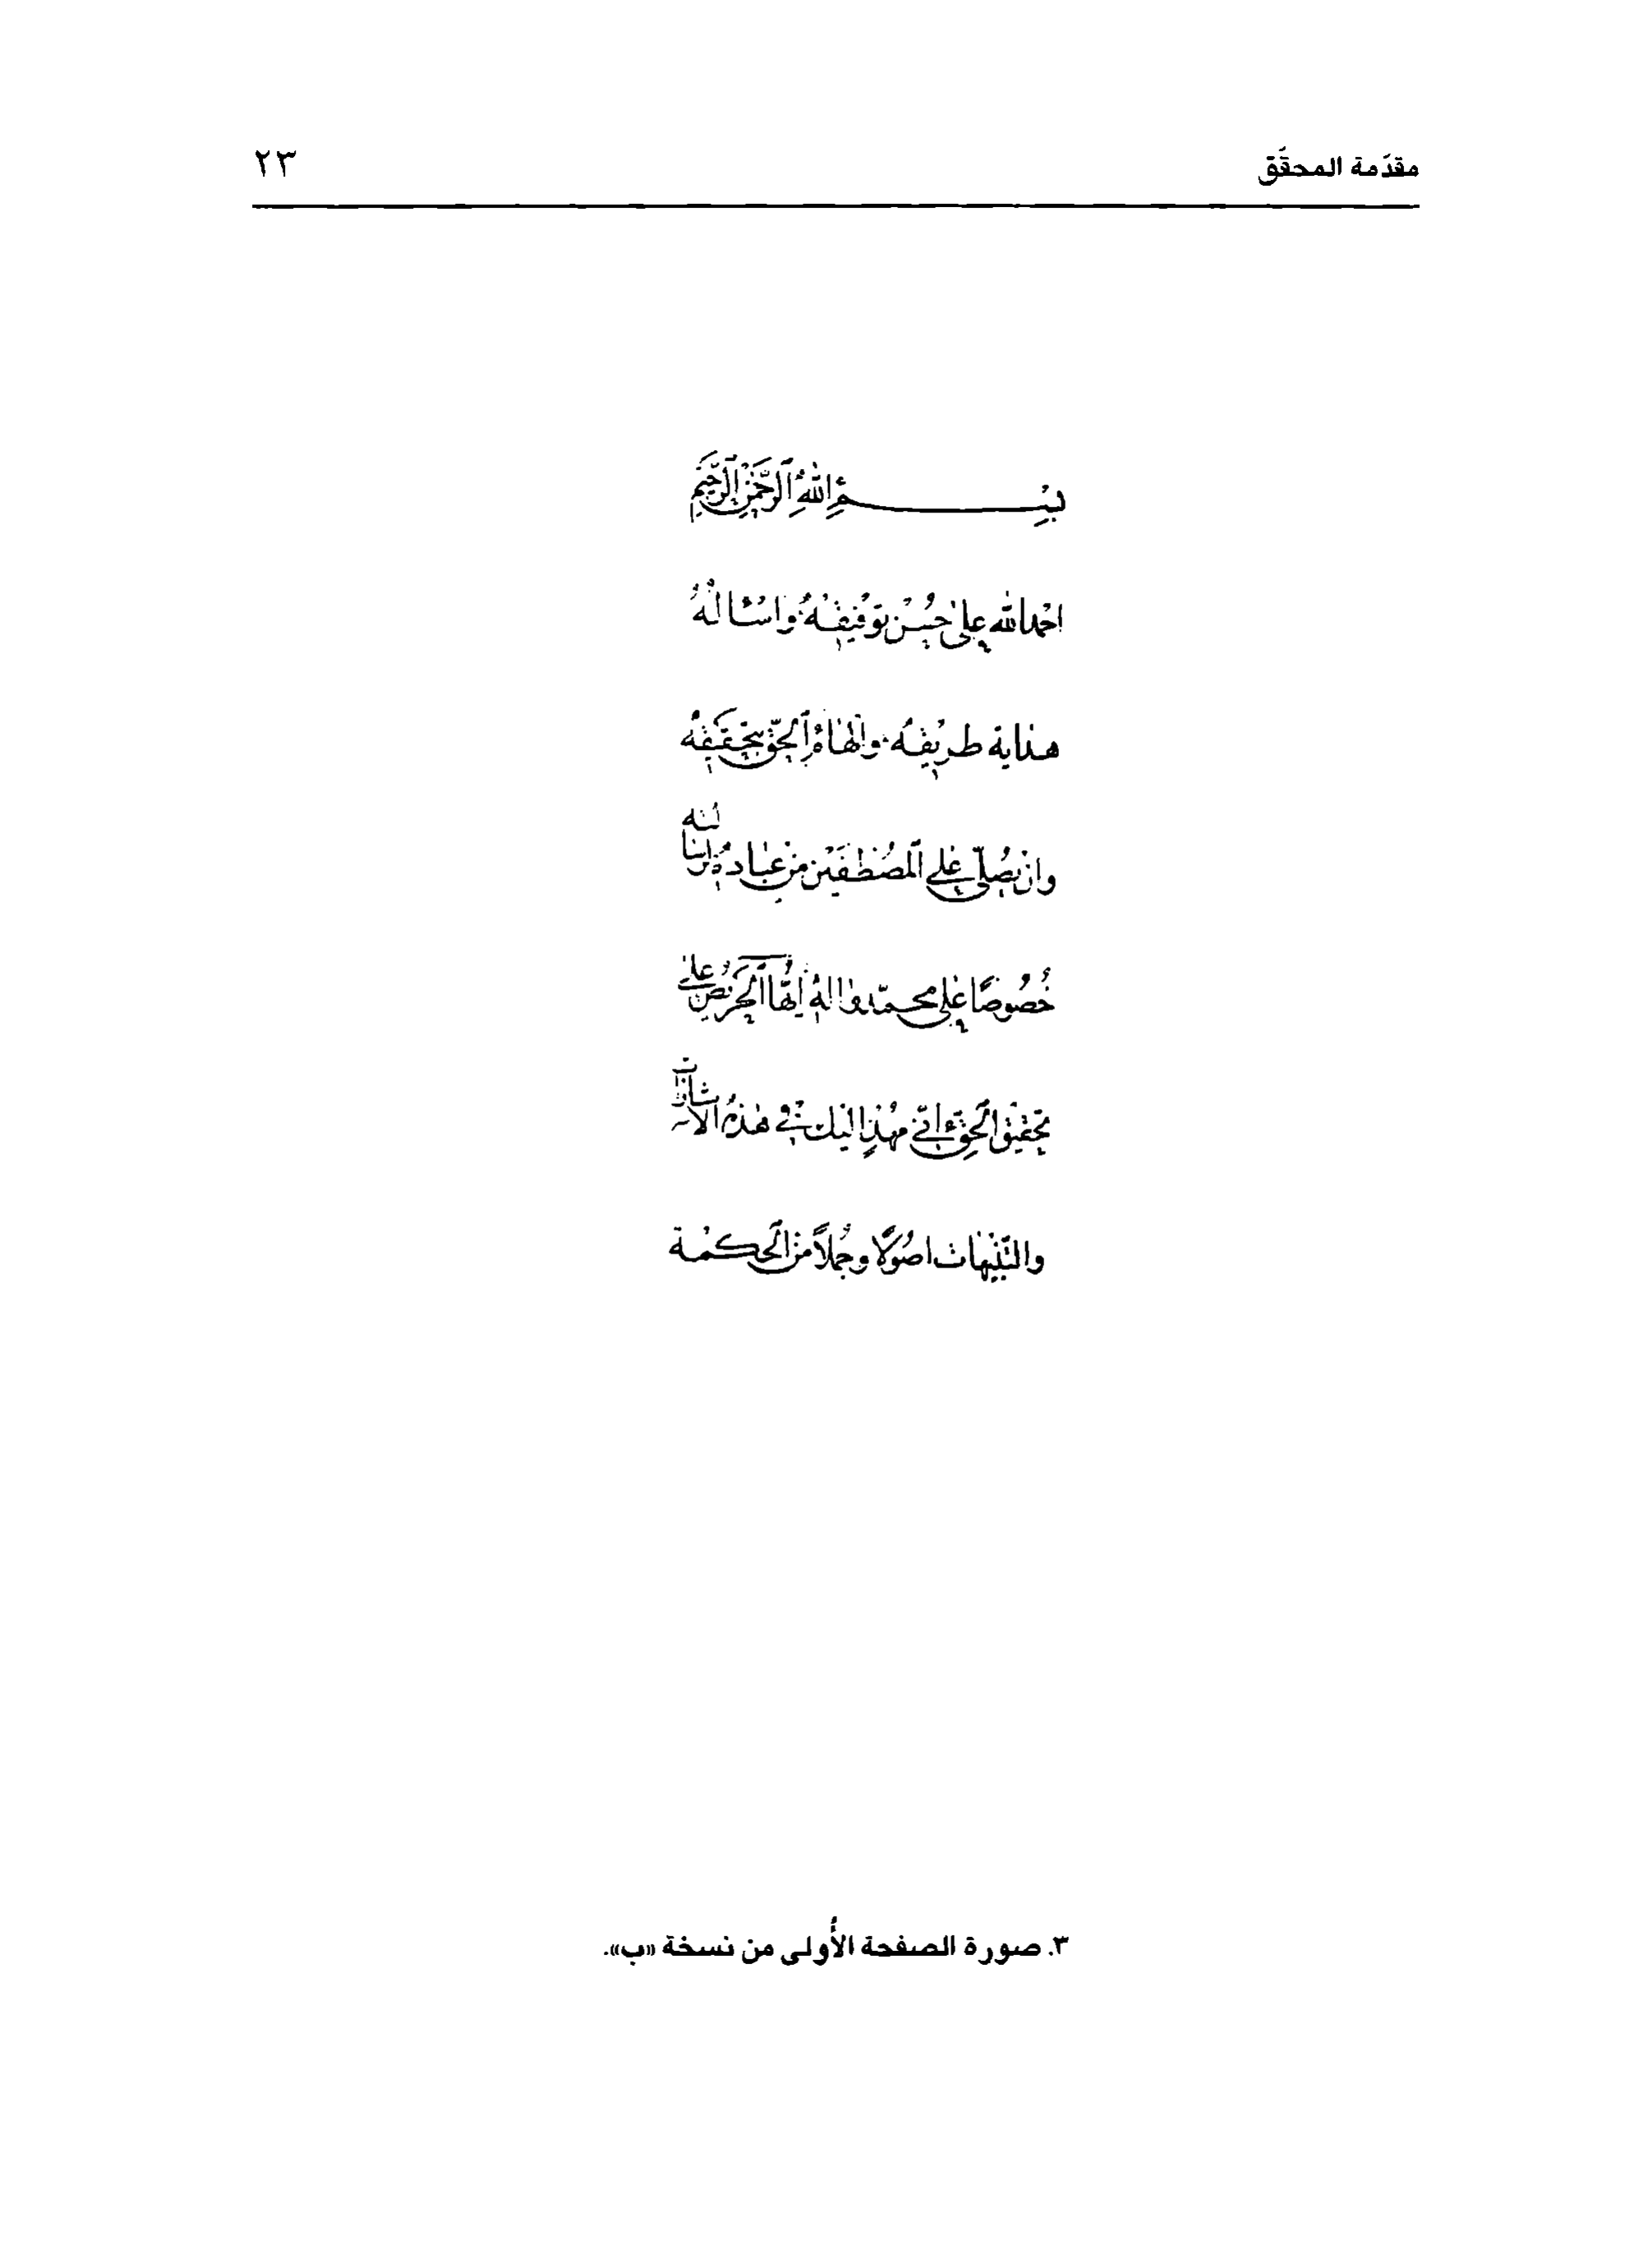 مقدّمة المحقّق
٢٣
بِسْمِ اللهِ الرَّحْمٰنِ الرَّحِيمِ
احمد الله على حُسْن توفيقه واسأله
هداية طريقه والهام الحقّ بتحقيقه
وان يصلّى على المصطفين من عباده لرسالته
خصوصًا على محمّد واله ايّها الحريص على
تحقيق الحقّ انّى مهذٍ اليك فى هذه الاشارات
والتنبيهات اصولًا وجملًا من الحكمة
٣. صورة الصفحة الأُولى من نسخة «ب».